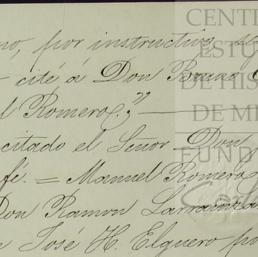 no, por instructivo
cité á Don Bruno
l Romero."
citado el Señor Don
fé. = Manuel Romero
Don Ramon Larrainzar
n José H. Elguero po
CENT
ESTU
DE HIS
DE M
FUND